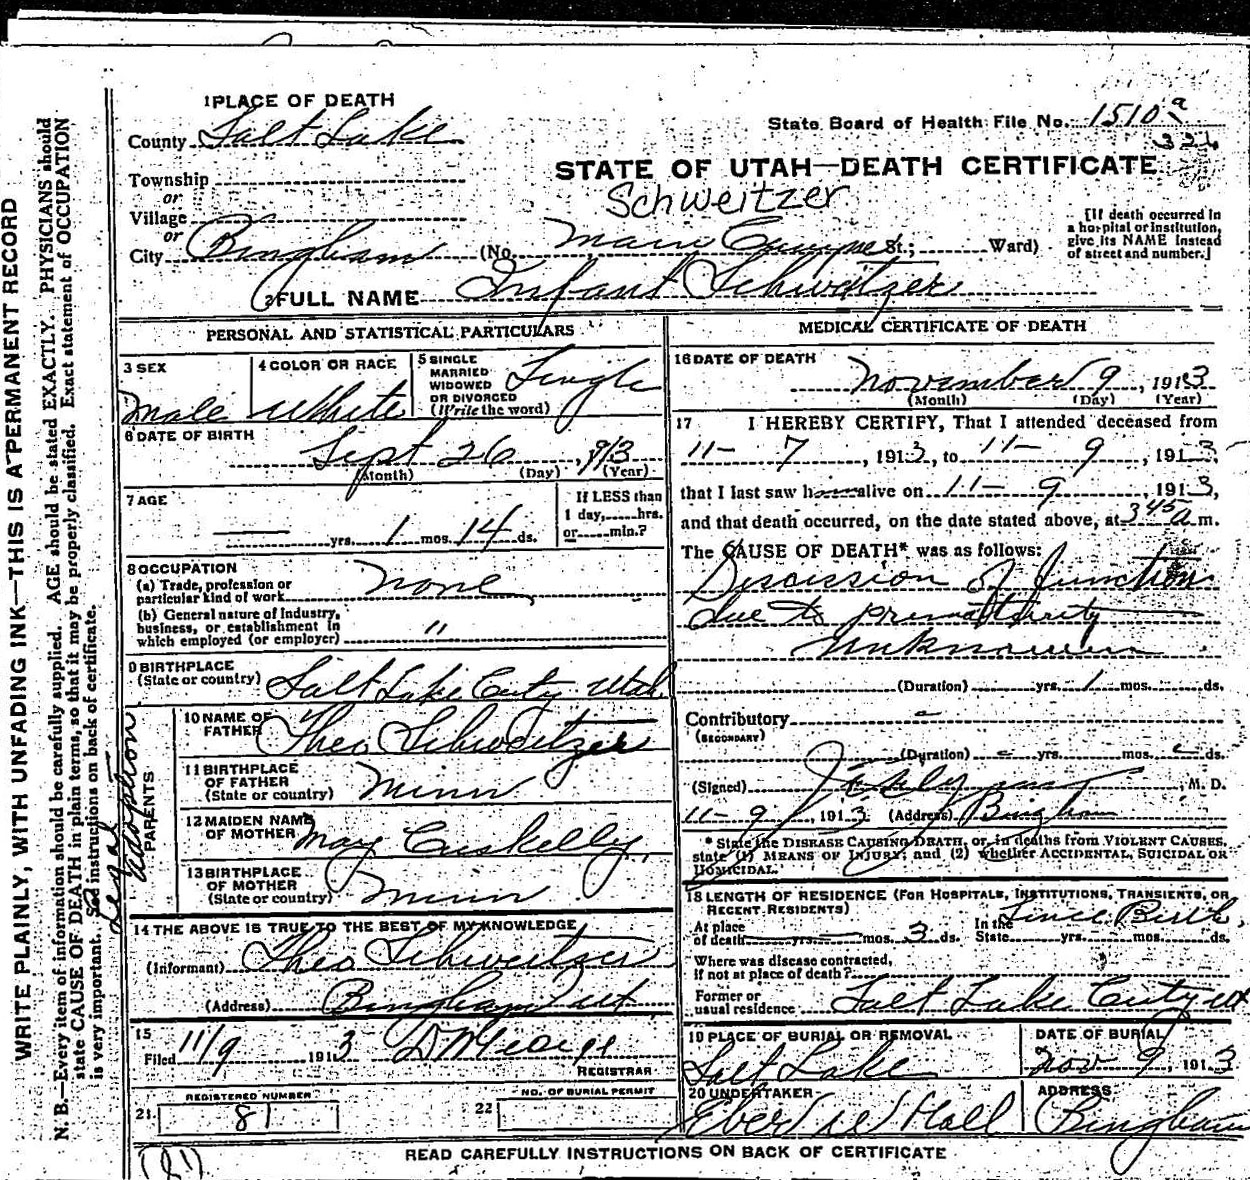 1 PLACE OF DEATH
County Salt Lake
State Board of Health File No. 1510 a
326
Township
or
Village
or
City Bingham (No. Main St.; Ward)
STATE OF UTAH—DEATH CERTIFICATE
Schweitzer
[If death occurred in
a hospital or institution,
give its NAME instead
of street and number.]
2 FULL NAME Infant Schweitzer
PERSONAL AND STATISTICAL PARTICULARS
3 SEX
Male
4 COLOR OR RACE
White
5 SINGLE
MARRIED
WIDOWED
OR DIVORCED
(Write the word)
Single
6 DATE OF BIRTH
Sept 26, 1913
(Month) (Day) (Year)
7 AGE
— yrs. 1 mos. 14 ds.
If LESS than
1 day, hrs.
or min.?
8 OCCUPATION
(a) Trade, profession or
particular kind of work none
(b) General nature of Industry,
business, or establishment in
which employed (or employer) "
9 BIRTHPLACE
(State or country) Salt Lake City Utah
PARENTS
Legal Adoption
10 NAME OF
FATHER Theo Schweitzer
11 BIRTHPLACE
OF FATHER
(State or country) Minn
12 MAIDEN NAME
OF MOTHER May Cuskelly
13 BIRTHPLACE
OF MOTHER
(State or country) Minn
14 THE ABOVE IS TRUE TO THE BEST OF MY KNOWLEDGE
(Informant) Theo Schweitzer
(Address) Bingham Ut
15
Filed 11/9 1913 REGISTRAR
REGISTERED NUMBER
21 81
NO. OF BURIAL PERMIT
22
MEDICAL CERTIFICATE OF DEATH
16 DATE OF DEATH
November 9, 1913
(Month) (Day) (Year)
17 I HEREBY CERTIFY, That I attended deceased from
11— 7, 1913, to 11— 9, 1913,
that I last saw h alive on 11— 9, 1913,
and that death occurred, on the date stated above, at 3 45 a m.
The CAUSE OF DEATH* was as follows:
of function
due to
unknown
(Duration) yrs. 1 mos. ds.
Contributory —
(SECONDARY)
(Duration) — yrs. mos. — ds.
(Signed) M. D.
11— 9, 1913 (Address) Bingham
* State the DISEASE CAUSING DEATH, or, in deaths from VIOLENT CAUSES,
state (1) MEANS OF INJURY; and (2) whether ACCIDENTAL, SUICIDAL OR
HOMICIDAL.
18 LENGTH OF RESIDENCE (FOR HOSPITALS, INSTITUTIONS, TRANSIENTS, OR
RECENT RESIDENTS)
At place
of death — yrs. — mos. 3 ds.
In the
State Since Birth yrs. mos. ds.
Where was disease contracted,
if not at place of death?
Former or
usual residence Salt Lake City Ut
19 PLACE OF BURIAL OR REMOVAL
Salt Lake
DATE OF BURIAL
Nov 9, 1913
20 UNDERTAKER
Hall
ADDRESS
Bingham
READ CAREFULLY INSTRUCTIONS ON BACK OF CERTIFICATE
(81)
WRITE PLAINLY, WITH UNFADING INK—THIS IS A PERMANENT RECORD
N. B.—Every item of information should be carefully supplied. AGE should be stated EXACTLY. PHYSICIANS should
state CAUSE OF DEATH in plain terms, so that it may be properly classified. Exact statement of OCCUPATION
is very important. See instructions on back of certificate.